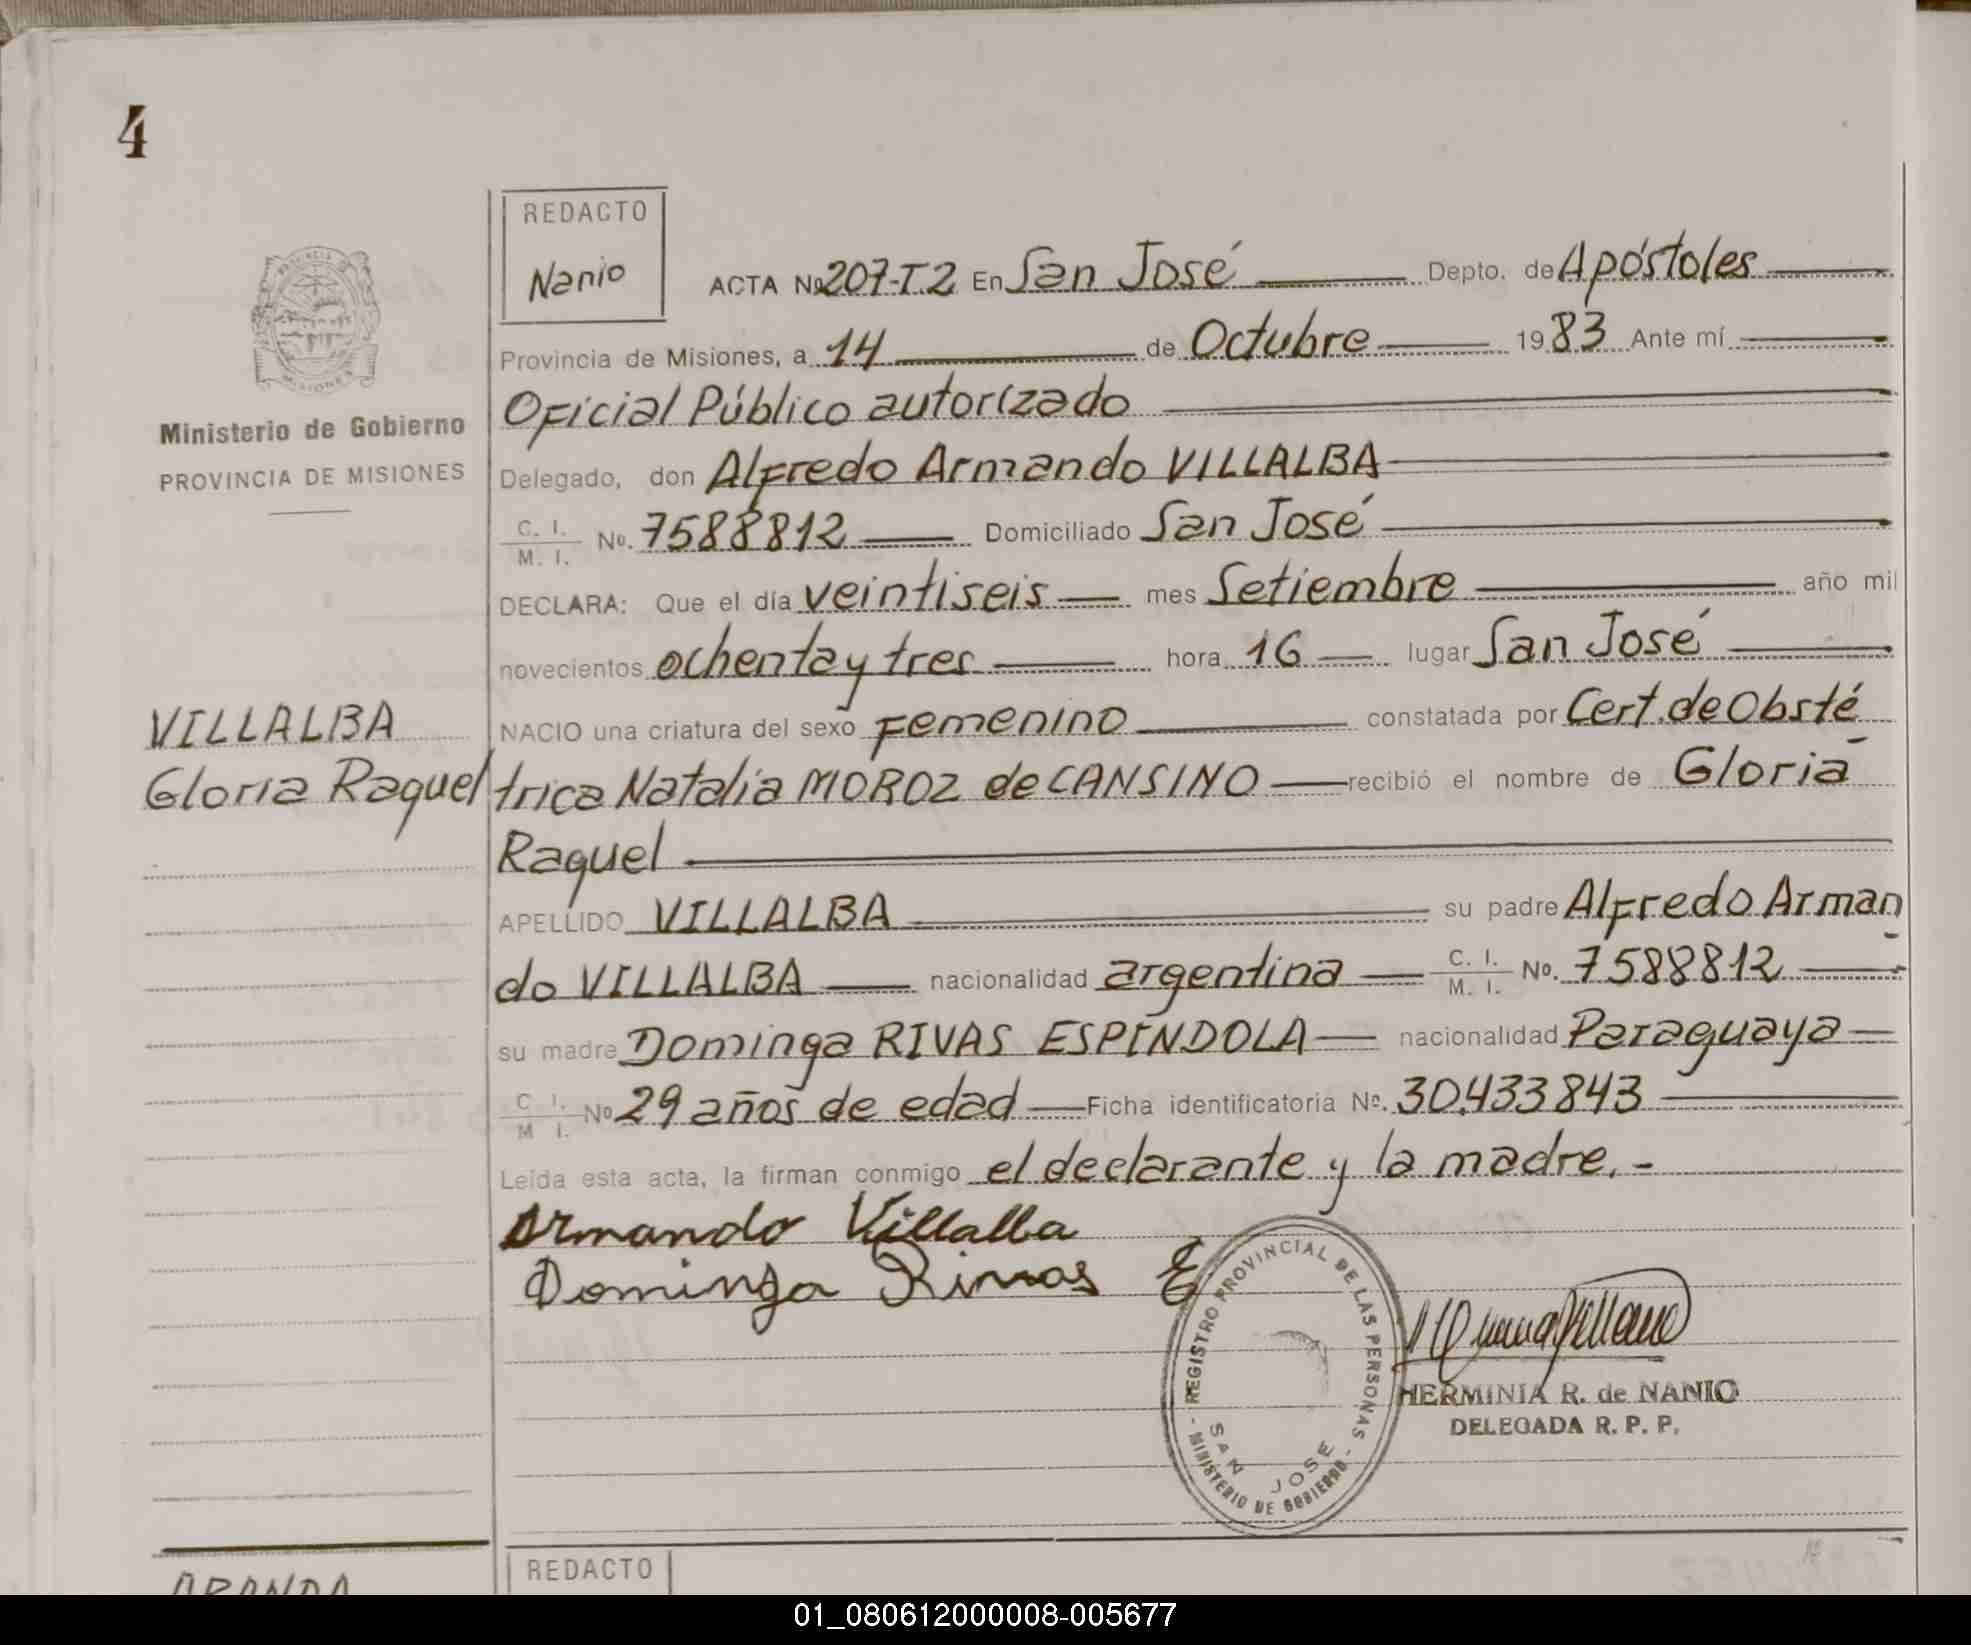 4
REDACTO
Nanio
ACTA Nº 207-T.2 En San José Depto. de Apóstoles
Provincia de Misiones, a 14 de Octubre 1983 Ante mí
Oficial Público autorizado
Ministerio de Gobierno
PROVINCIA DE MISIONES
Delegado, don Alfredo Armando VILLALBA
C. I. / M. I. No. 7588812 Domiciliado San José
DECLARA: Que el día veintiseis mes Setiembre año mil
novecientos ochenta y tres hora 16 lugar San José
NACIO una criatura del sexo Femenino constatada por Cert. de Obsté
VILLALBA
Gloria Raquel
trica Natalia MOROZ de CANSINO recibió el nombre de Gloria
Raquel
APELLIDO VILLALBA su padre Alfredo Arman
do VILLALBA nacionalidad argentina C. I. / M. I. No. 7588812
su madre Dominga RIVAS ESPÍNDOLA nacionalidad Paraguaya
C I. / M I. No 29 años de edad Ficha identificatoria No. 30.433843
Leída esta acta, la firman conmigo el declarante y la madre.-
Armando Villalba
Dominga Rivas E
REGISTRO PROVINCIAL DE LAS PERSONAS
MINISTERIO DE GOBIERNO
SAN JOSE
HERMINIA R. de NANIO
DELEGADA R. P. P.
REDACTO
ARANDA
01_080612000008-005677